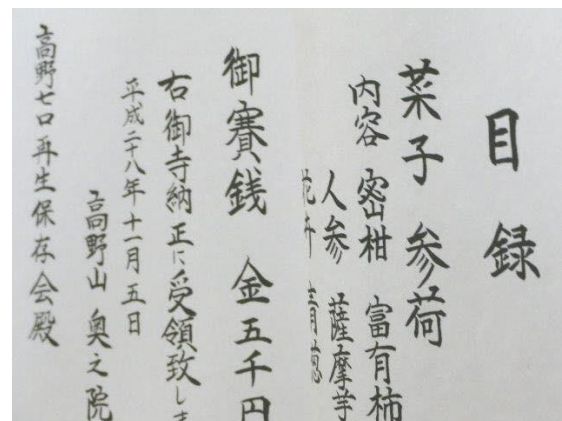 目録
菜子 参荷
内容 密柑 富有柿
人参 薩摩芋
御賽銭 金五千円
右御寺納正に受領致しま
平成二十八年十一月五日
高野山 奥之院
高野七口再生保存会殿